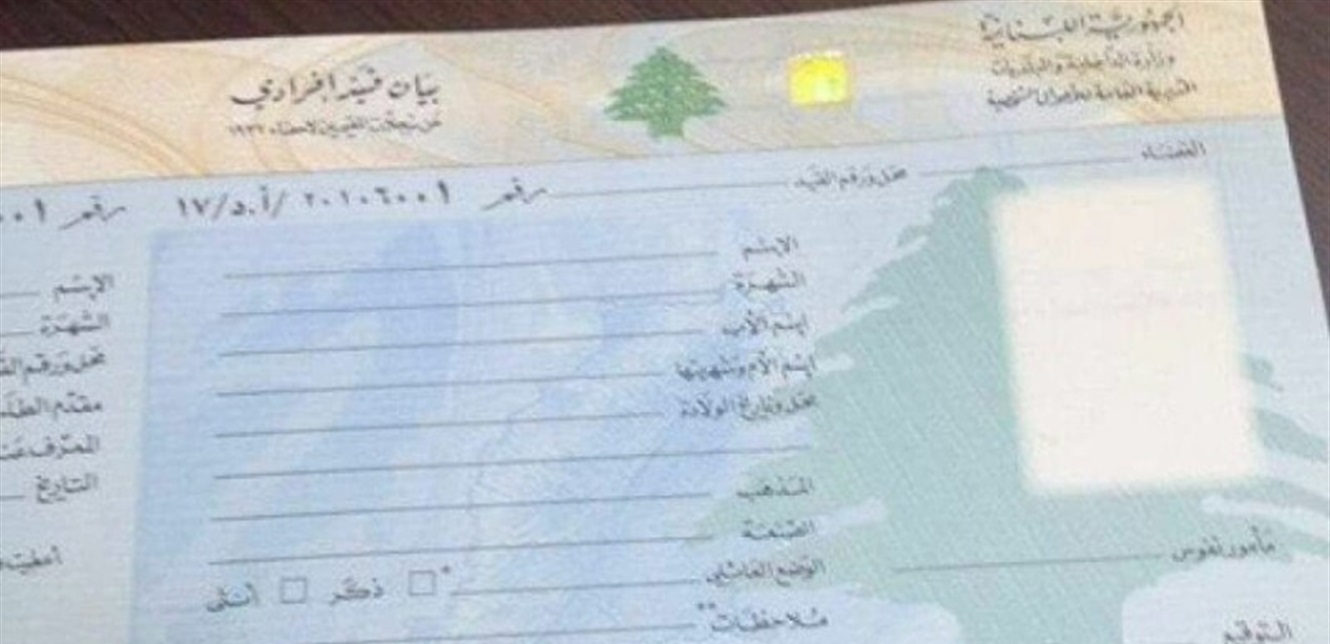 الجمهورية اللبنانية
وزارة الداخلية والبلديات
المديرية العامة للأحوال الشخصية
بيان قيد إفرادي
عن سجلات المقيمين لاحصاء ١٩٣٢
القضاء
محل ورقم القيد
رقم ٢٠١٠٦٠٠١ /أ.د/١٧
رقم
الإسم
الشهرة
إسم الأب
إسم الأم وشهرتها
محل وتاريخ الولادة
المذهب
الصنعة
الوضع العائلي
* ذكر أنثى
ملاحظات**
مأمور نفوس
التوقيع
الإسم
الشهرة
محل ورقم
مقدم
المعرف
التاريخ